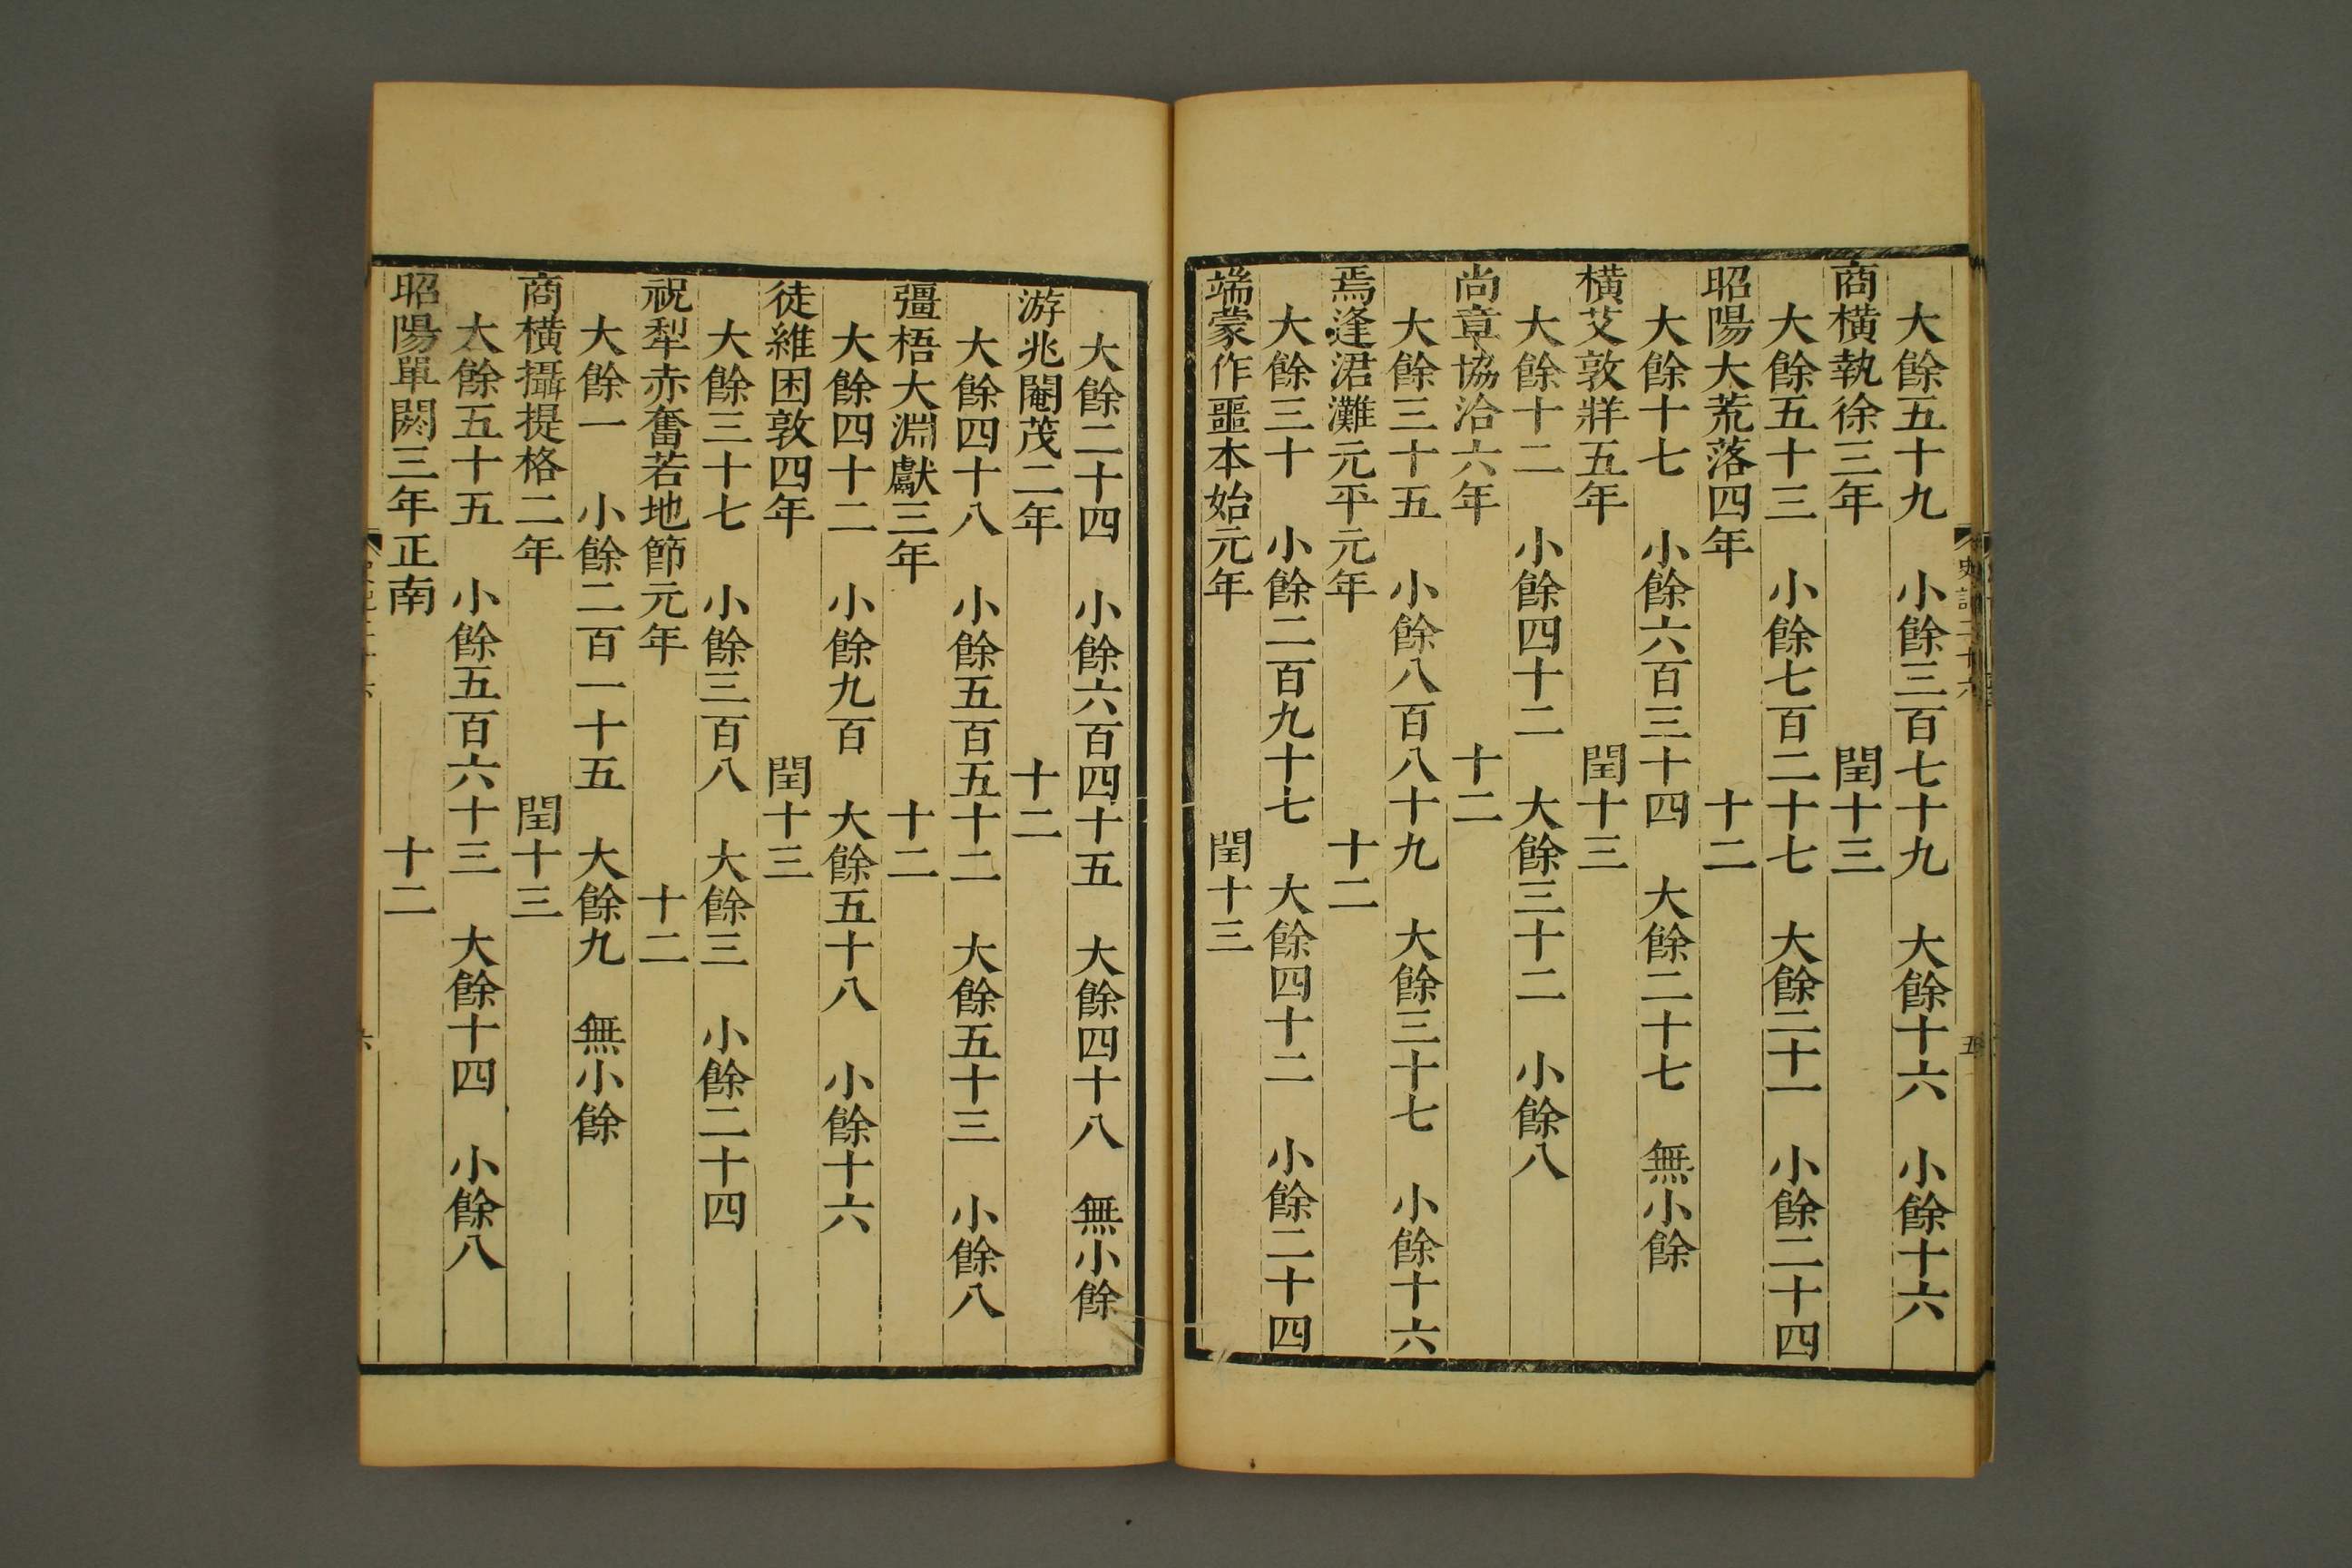 大餘五十九　小餘三百七十九　大餘十六　小餘十六
商橫執徐三年　閏十三
大餘五十三　小餘七百二十七　大餘二十一　小餘二十四
昭陽大荒落四年　十二
大餘十七　小餘六百三十四　大餘二十七　無小餘
橫艾敦牂五年　閏十三
大餘十二　小餘四十二　大餘三十二　小餘八
尚章協洽六年　十二
大餘三十五　小餘八百八十九　大餘三十七　小餘十六
焉逢涒灘元平元年　十二
大餘三十　小餘二百九十七　大餘四十二　小餘二十四
端蒙作噩本始元年　閏十三
史記二十六
五
大餘二十四　小餘六百四十五　大餘四十八　無小餘
游兆閹茂二年　十二
大餘四十八　小餘五百五十二　大餘五十三　小餘八
彊梧大淵獻三年　十二
大餘四十二　小餘九百　大餘五十八　小餘十六
徒維困敦四年　閏十三
大餘三十七　小餘三百八　大餘三　小餘二十四
祝犁赤奮若地節元年　十二
大餘一　小餘二百一十五　大餘九　無小餘
商橫攝提格二年　閏十三
大餘五十五　小餘五百六十三　大餘十四　小餘八
昭陽單閼三年正南　十二